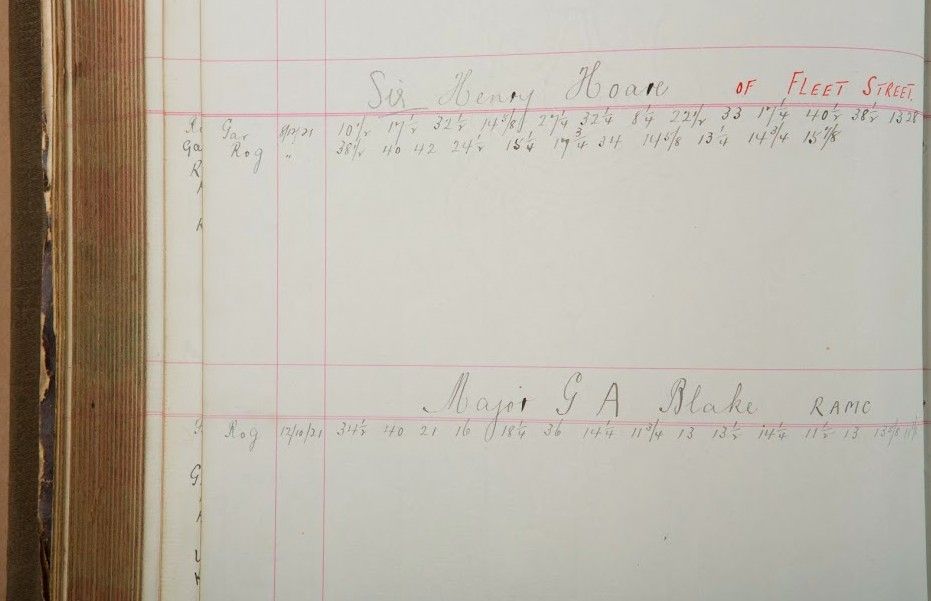 Sir Henry Hoare OF FLEET STREET.
Gar 8/12/21 10 1/2 17 1/2 32 1/2 14 5/8 27 1/4 32 1/4 8 1/4 22 1/2 33 17 1/4 40 1/2 38 1/2 13 28
Rog " 38 1/2 40 42 24 1/2 15 1/4 17 3/4 34 14 5/8 13 1/4 14 3/4 15 7/8
Major G A Blake RAMC
Rog 12/10/21 34 1/2 40 21 16 18 1/4 36 14 1/4 11 3/4 13 13 1/2 14 1/4 11 1/2 13 13 5/8